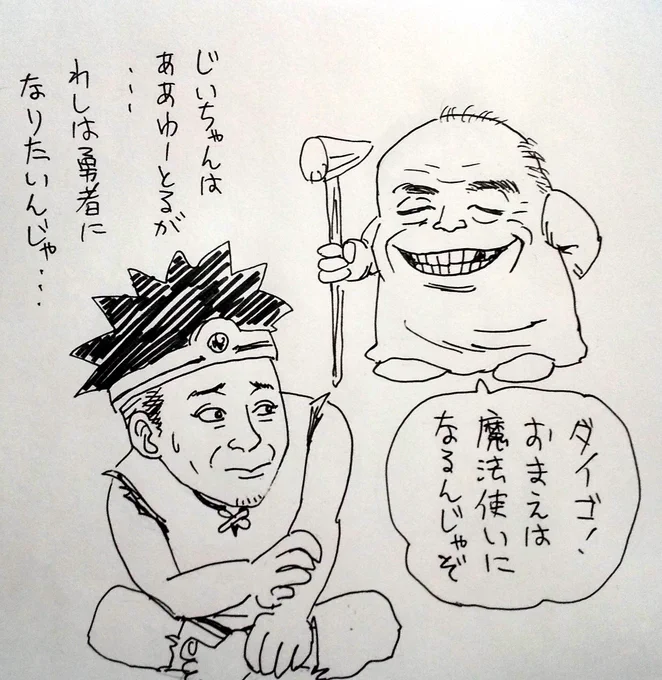 ダイゴ!
おまえは
魔法使いに
なるんじゃぞ
じいちゃんは
ああゆーとるが
・・・
わしは勇者に
なりたいんじゃ・・・